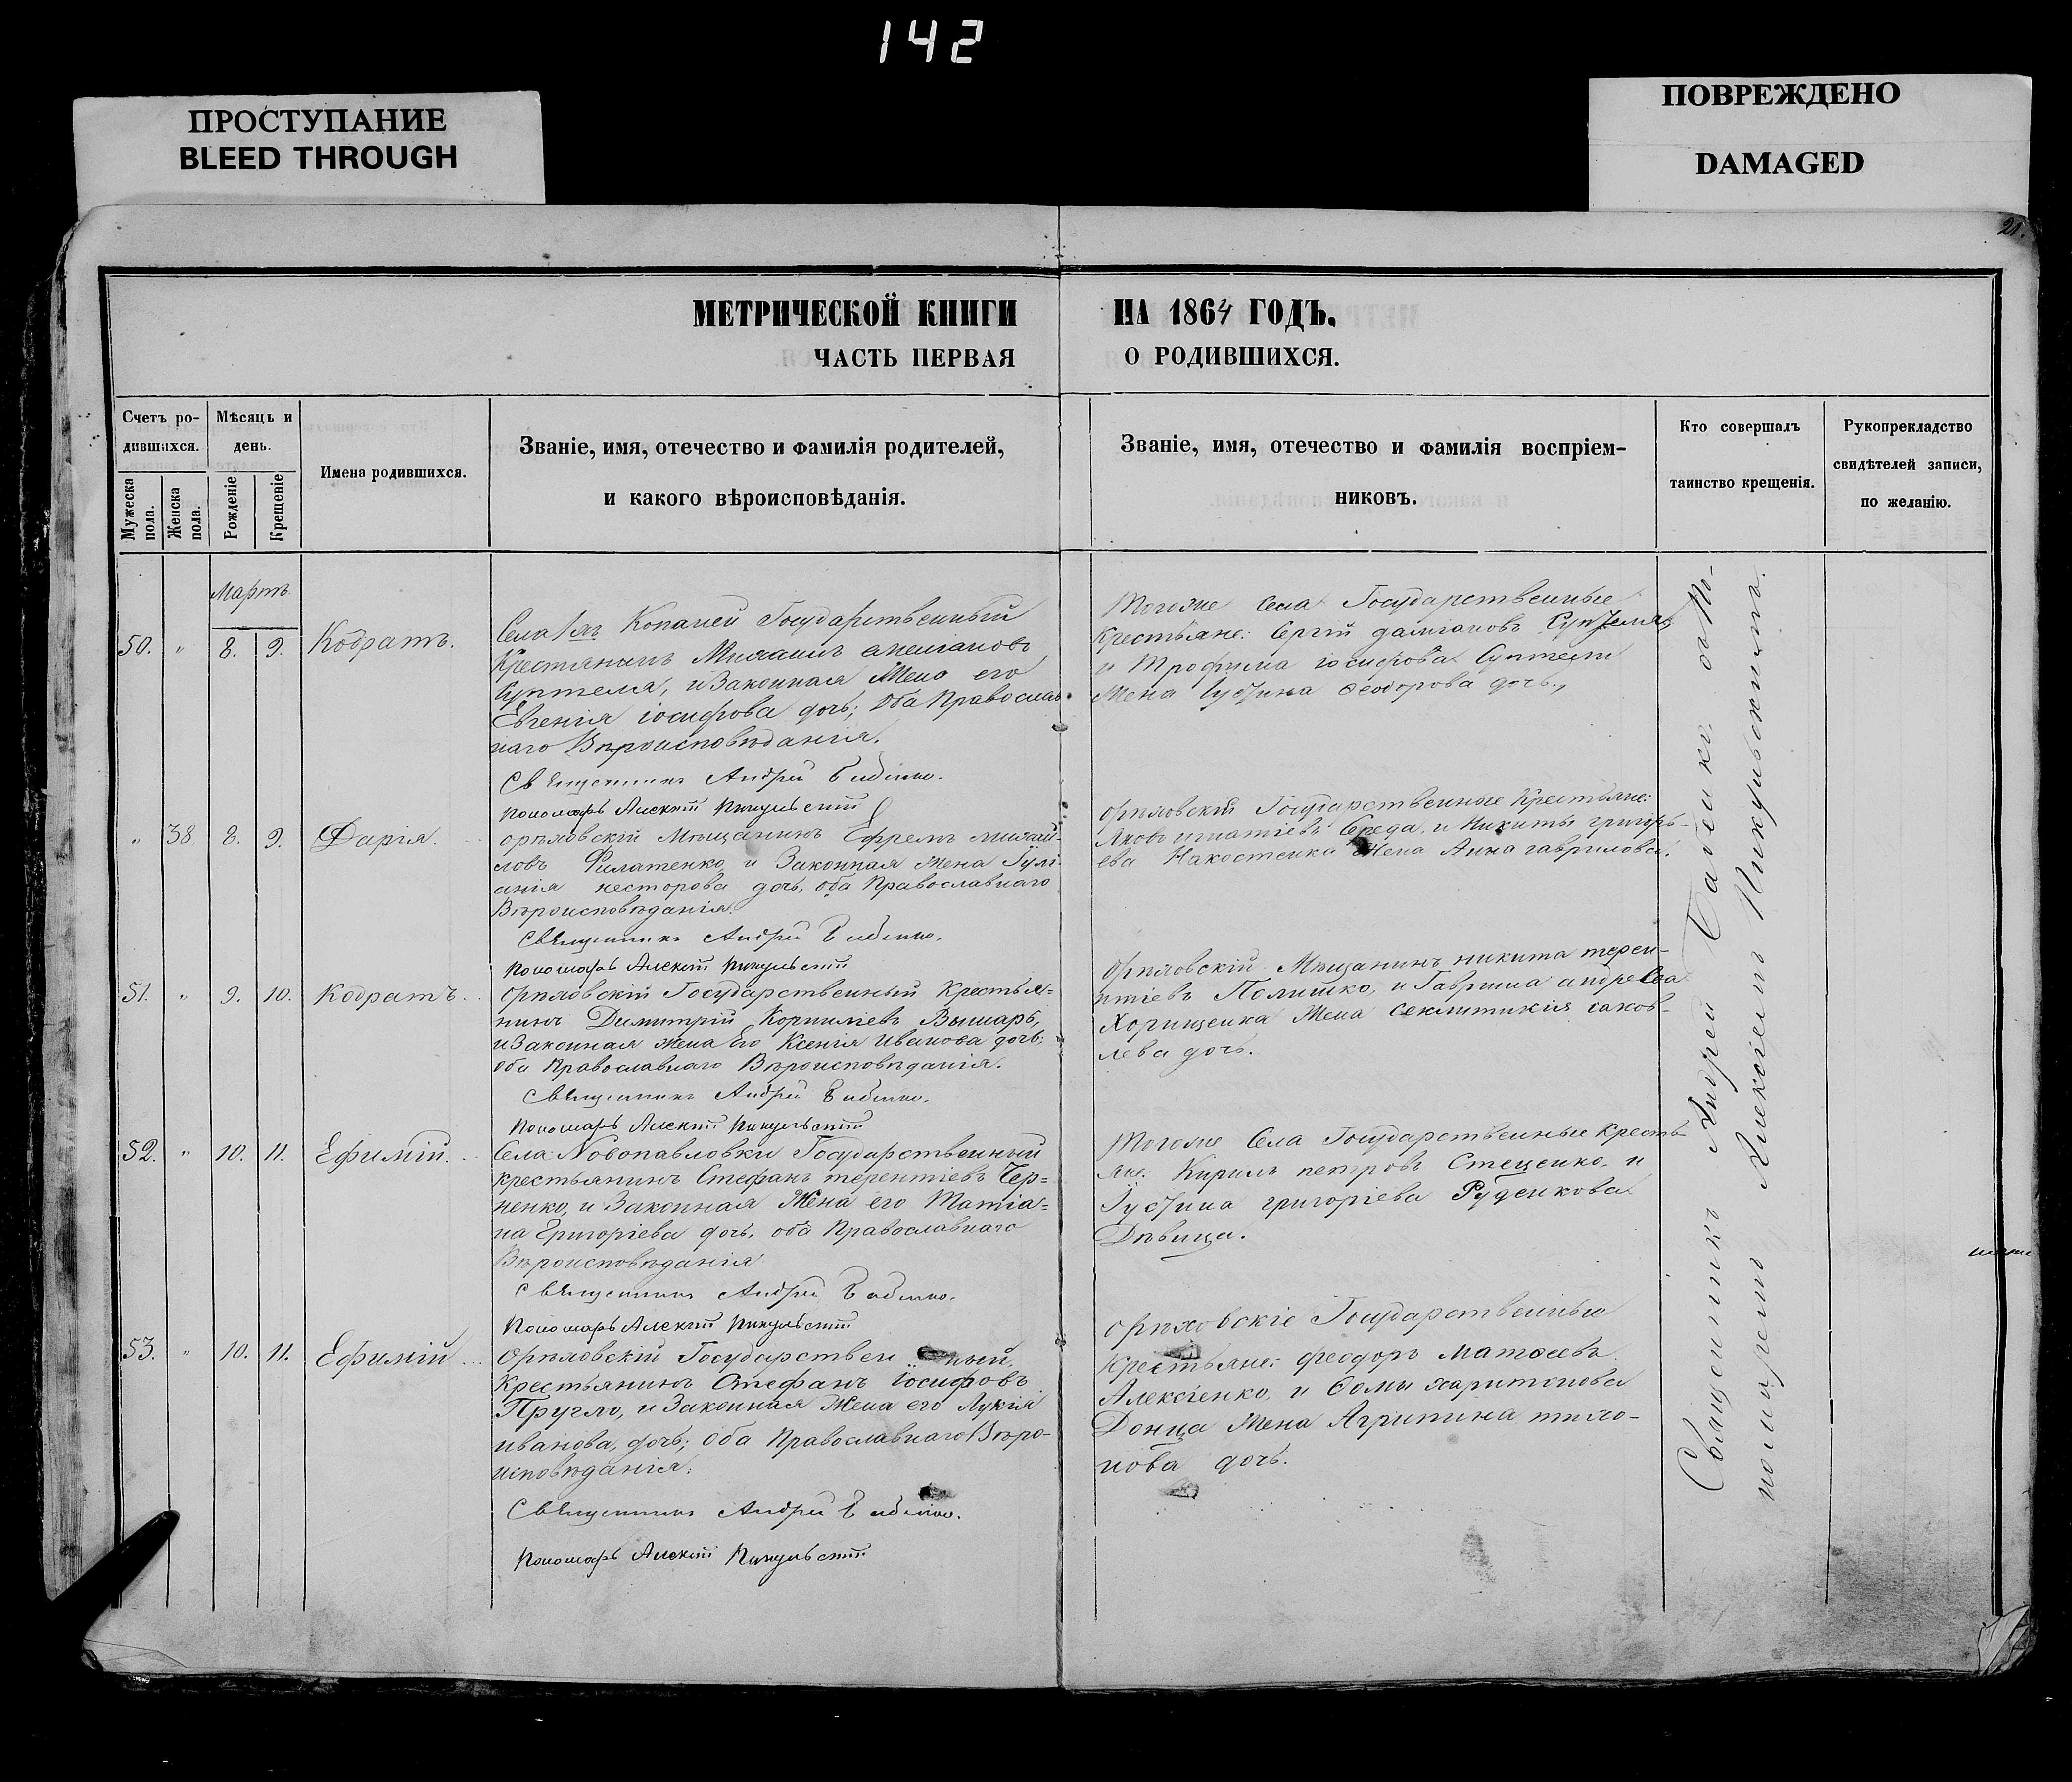 142
ПРОСТУПАНИЕ
BLEED THROUGH
ПОВРЕЖДЕНО
DAMAGED
21.
МЕТРИЧЕСКОЙ КНИГИ НА 1864 ГОДЪ.
ЧАСТЬ ПЕРВАЯ О РОДИВШИХСЯ.
Счетъ ро-
дившихся.
Мужеска пола.
Женска пола.
Мѣсяць и
день.
Рожденіе
Крещеніе
Имена родившихся.
Званіе, имя, отечество и фамилія родителей,
и какого вѣроисповѣданія.
Званіе, имя, отечество и фамилія воспріем-
никовъ.
Кто совершалъ
таинство крещенія.
Рукоприкладство
свидѣтелей записи,
по желанію.
Мартъ
50. " 8. 9. Кодратъ.
Села Копаней Государственный
Крестьянинъ Михаилъ
и Законная Жена его
Евгенія іосифова дочь; Оба Православ-
наго Вѣроисповѣданія.
Священникъ Андрей
Пономарь Алексій Пикульскій
Тогоже Села Государственные
Крестьяне: Сергій даміановъ
и Трофима іосифова
Жена Іустина Феодорова дочь.,
" 38. 8. 9. Дарія.
орѣховскій Мѣщанинъ Ефремъ михай-
ловъ Филатенко, и Законная Жена Іулі-
анія несторова дочь, оба Православнаго
Вѣроисповѣданія.
Священникъ Андрей
Пономарь Алексій Пикульскій
орѣховскій Государственные Крестьяне:
Яковъ игнатіевъ Середа, и Никиты григорь-
ева Накостенка Жена Анна гаврилова.
51. " 9. 10. Кодратъ.
Орѣховскій Государственный Крестья-
нинъ Димитрій Корниліевъ
и Законная жена Его Ксенія Иванова дочь;
оба Православнаго Вѣроисповѣданія.
Священникъ Андрей
Пономарь Алексій Пикульскій
Орѣховскій Мѣщанинъ никита терен-
тіевъ и Гавриила андреева
Хорищенка Жена сенклитикія іаков-
лева дочь.
52. " 10. 11. Ефимій.
Села Новопавловки Государственный
крестьянинъ Стефанъ терентіевъ Чер-
ненко, и Законная Жена его Татіа-
на Григоріева дочь, оба Православнаго
Вѣроисповѣданія
Священникъ Андрей
Пономарь Алексій Пикульскій
Тогоже Села Государственные кресть-
яне: Кирилъ петровъ Стеценко, и
Іустина григоріева Руденкова
Дѣвица.
53. " 10. 11. Ефимій
Орѣховскій Государствен ный
Крестьянинъ Стефанъ іосифовъ
Пругло, и Законная Жена его Лукія
иванова, дочь; Оба Православнаго Вѣро-
исповѣданія:
Священникъ Андрей
Пономарь Алексій Пикульскій
орѣховскіе Государственные
Крестьяне: феодоръ Матѳеевъ
Алексіенко, и Ѳомы харитонова
Донца Жена Агрипина тихо-
нова дочь.
Священникъ Андрей
пономаремъ Алексіемъ Пикульскимъ.